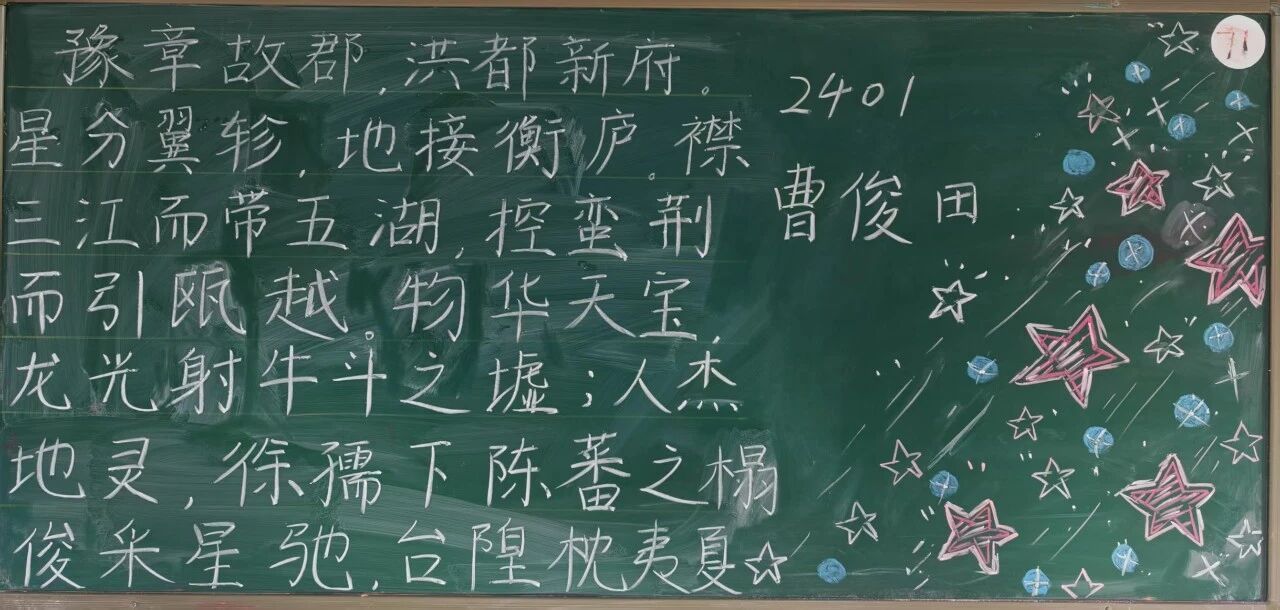 豫章故郡,洪都新府。
星分翼轸,地接衡庐。襟
三江而带五湖,控蛮荆
而引瓯越。物华天宝,
龙光射牛斗之墟;人杰
地灵,徐孺下陈蕃之榻
俊采星驰,台隍枕夷夏
2401
曹俊田
71